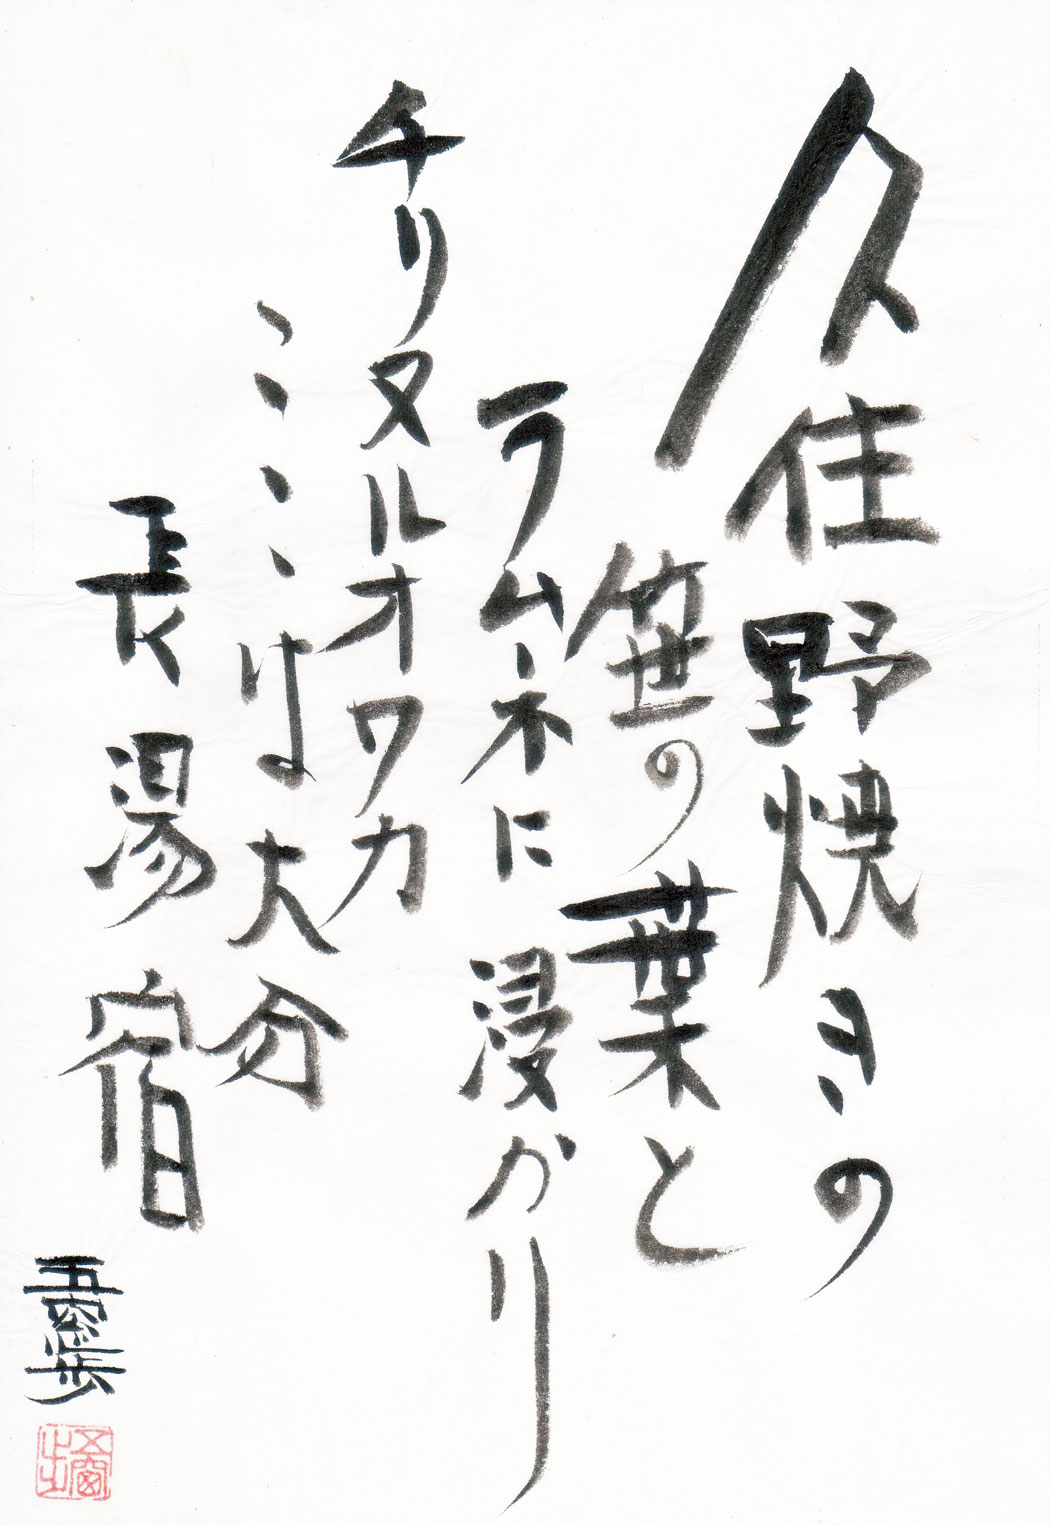 久住野焼きの
笹の葉と
ラムネに浸かり
チリヌルオワカ
ここは大分
長湯宿
五窓歩